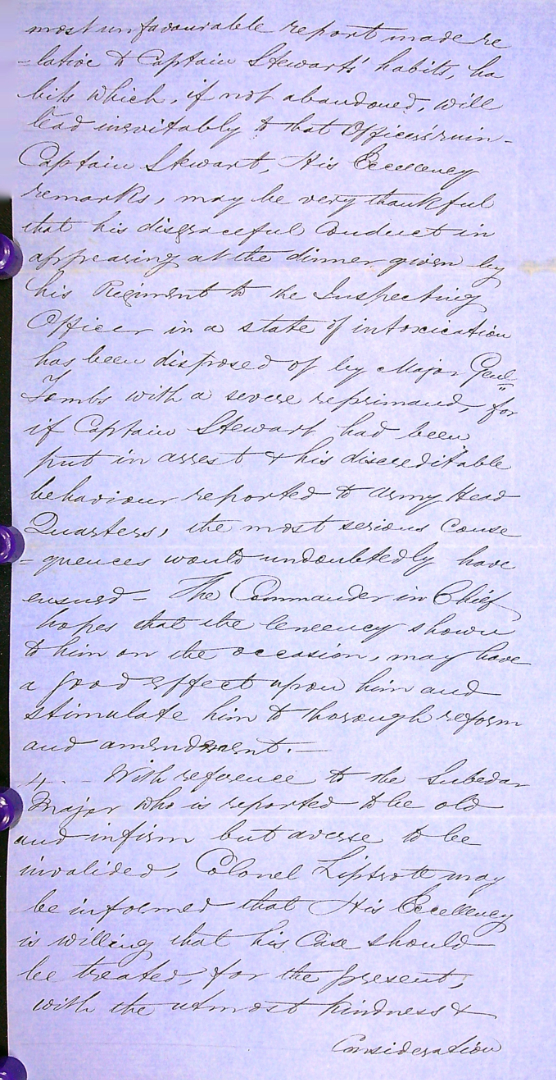 most unfavourable report made re
=lative to Captain Stewart's habits, ha
bits which, if not abandoned, will
lead inevitably to that Officer's ruin -
Captain Stewart, His Excellency
remarks, may be very thankful
that his disgraceful conduct in
appearing at the dinner given by
his Regiment to the Inspecting
Officer in a state of intoxication
has been disposed of by Major Genl
Tombs with a severe reprimand, for
if Captain Stewart had been
put in arrest & his discreditable
behaviour reported to Army Head
Quarters, the most serious conse
=quences would undoubtedly have
ensued - The Commander in Chief
hopes that the leneency shown
to him on the occasion, may have
a good effect upon him and
stimulate him to thorough reform
and amendment. -
4. - With reference to the Subedar
Major who is reported to be old
and infirm but averse to be
invalided, Colonel Liptrott may
be informed that His Excellency
is willing that his case should
be treated, for the present,
with the utmost kindness &
Consideration